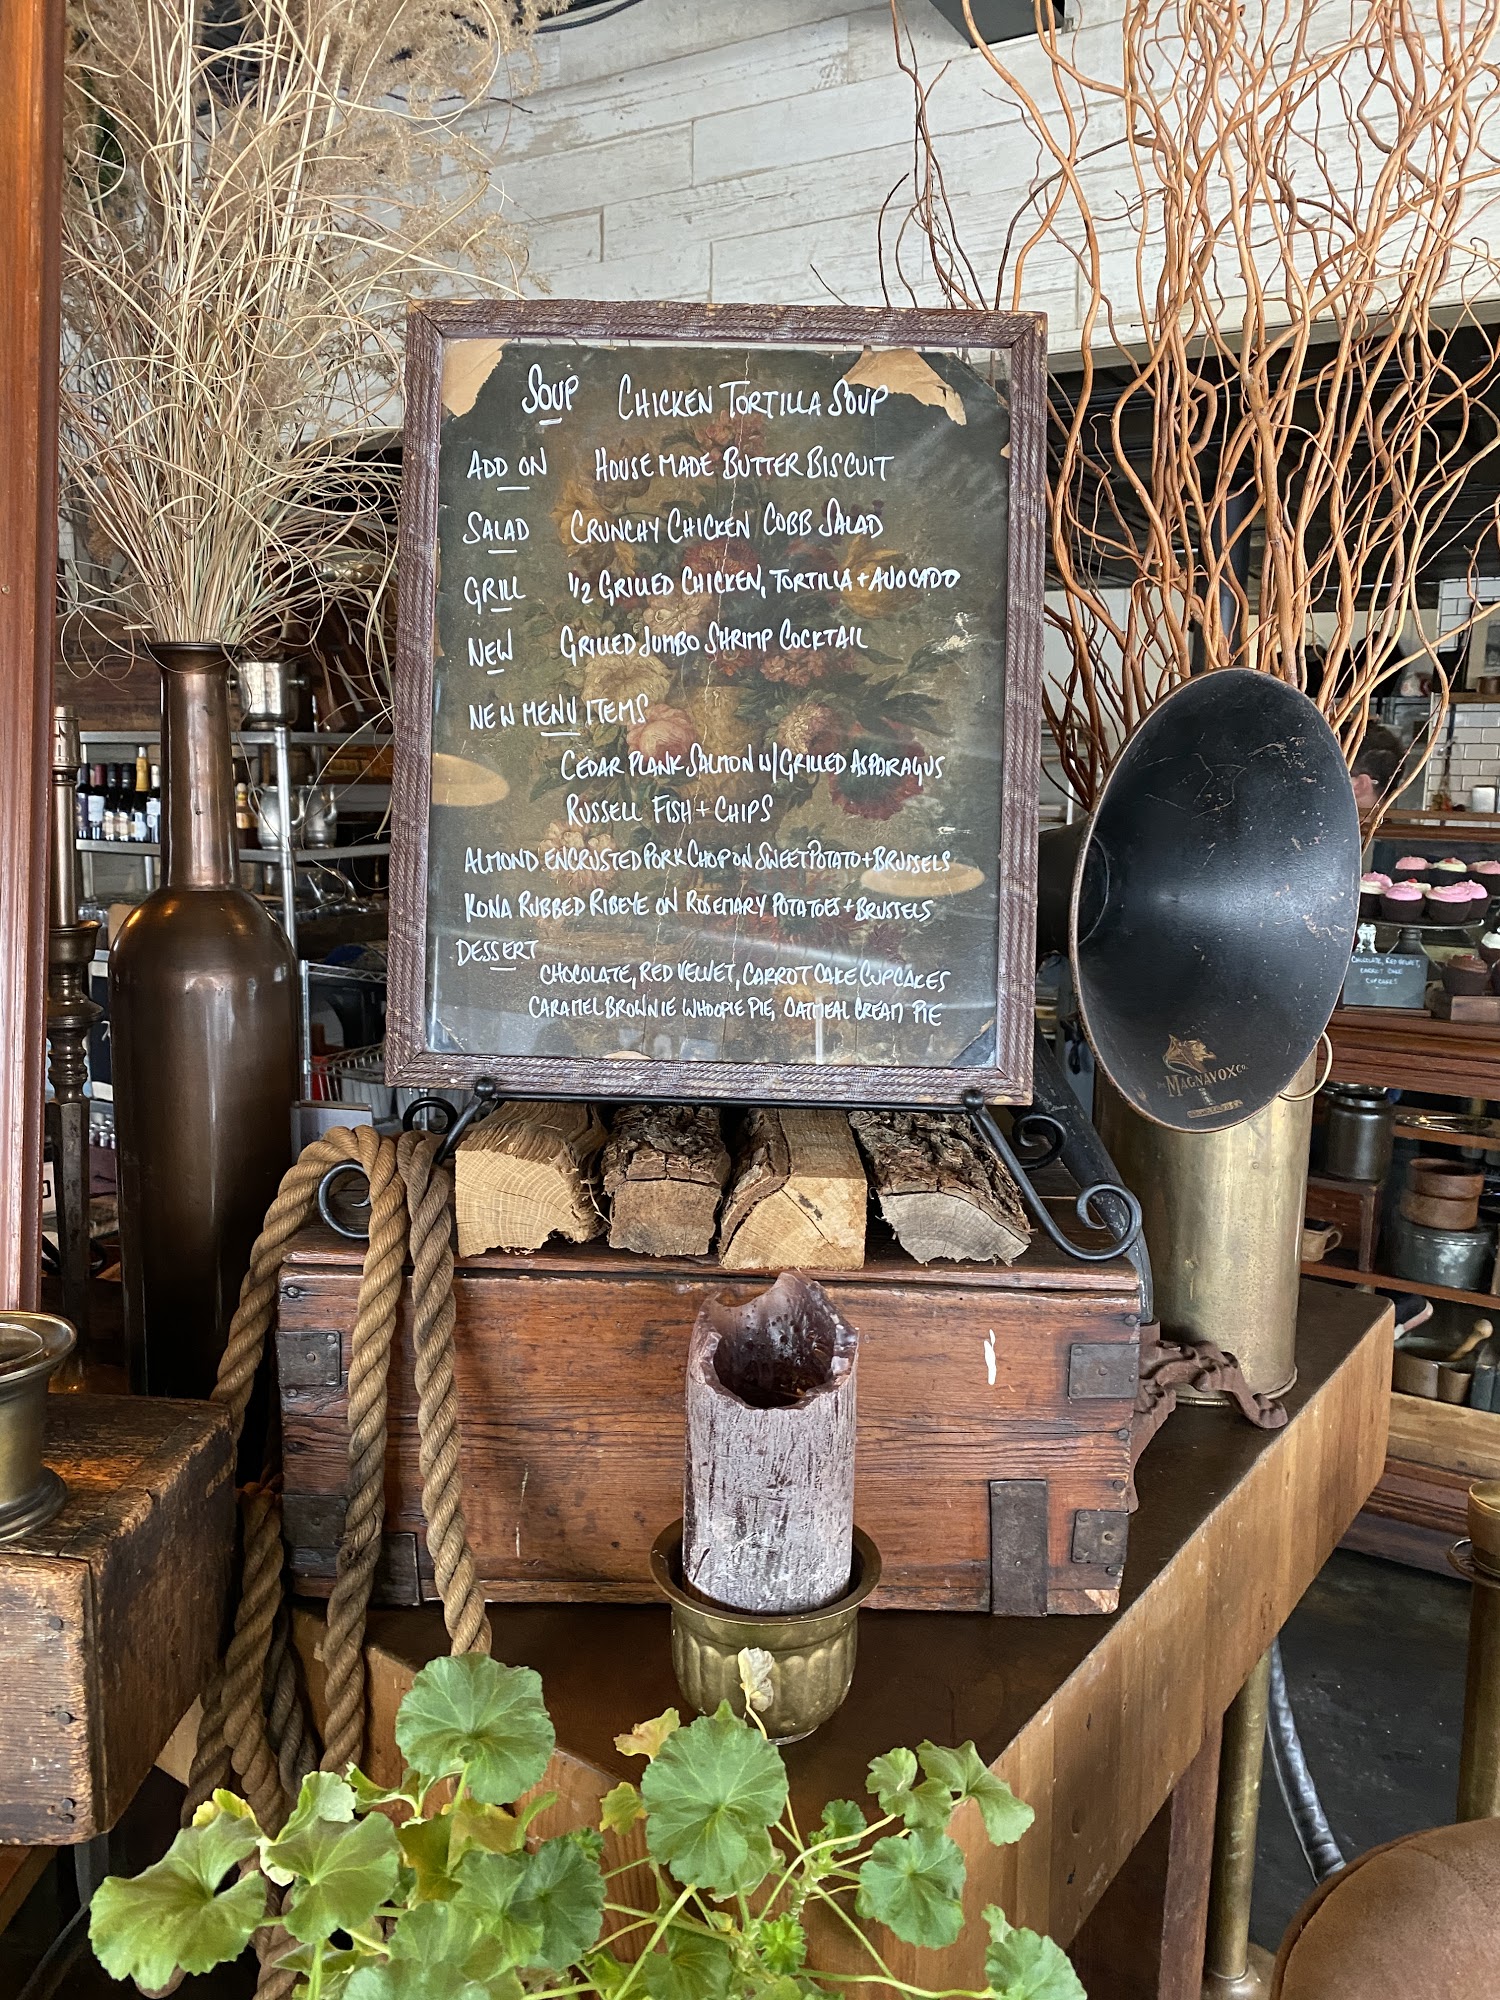 SOUP CHICKEN TORTILLA SOUP
ADD ON HOUSE MADE BUTTER BISCUIT
SALAD CRUNCHY CHICKEN COBB SALAD
GRILL 1/2 GRILLED CHICKEN, TORTILLA + AVOCADO
NEW GRILLED JUMBO SHRIMP COCKTAIL
NEW MENU ITEMS
CEDAR PLANK SALMON W/ GRILLED ASPARAGUS
RUSSELL FISH + CHIPS
ALMOND ENCRUSTED PORK CHOP ON SWEET POTATO + BRUSSELS
KONA RUBBED RIBEYE ON ROSEMARY POTATOES + BRUSSELS
DESSERT
CHOCOLATE, RED VELVET, CARROT CAKE CUPCAKES
CARAMEL BROWNIE WHOOPIE PIE, OATMEAL CREAM PIE
CHOCOLATE, RED VELVET,
CARROT CAKE
CUPCAKES
THE MAGNAVOX CO.